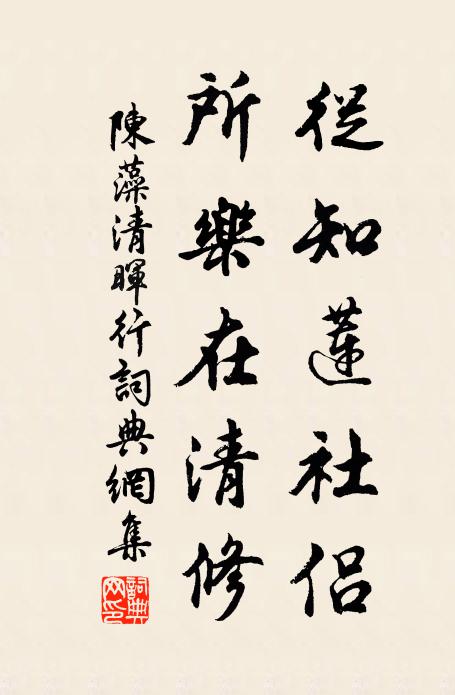 從知蓮社侶
所樂在清修
陳藻清暉行詞典網集
詞典網印